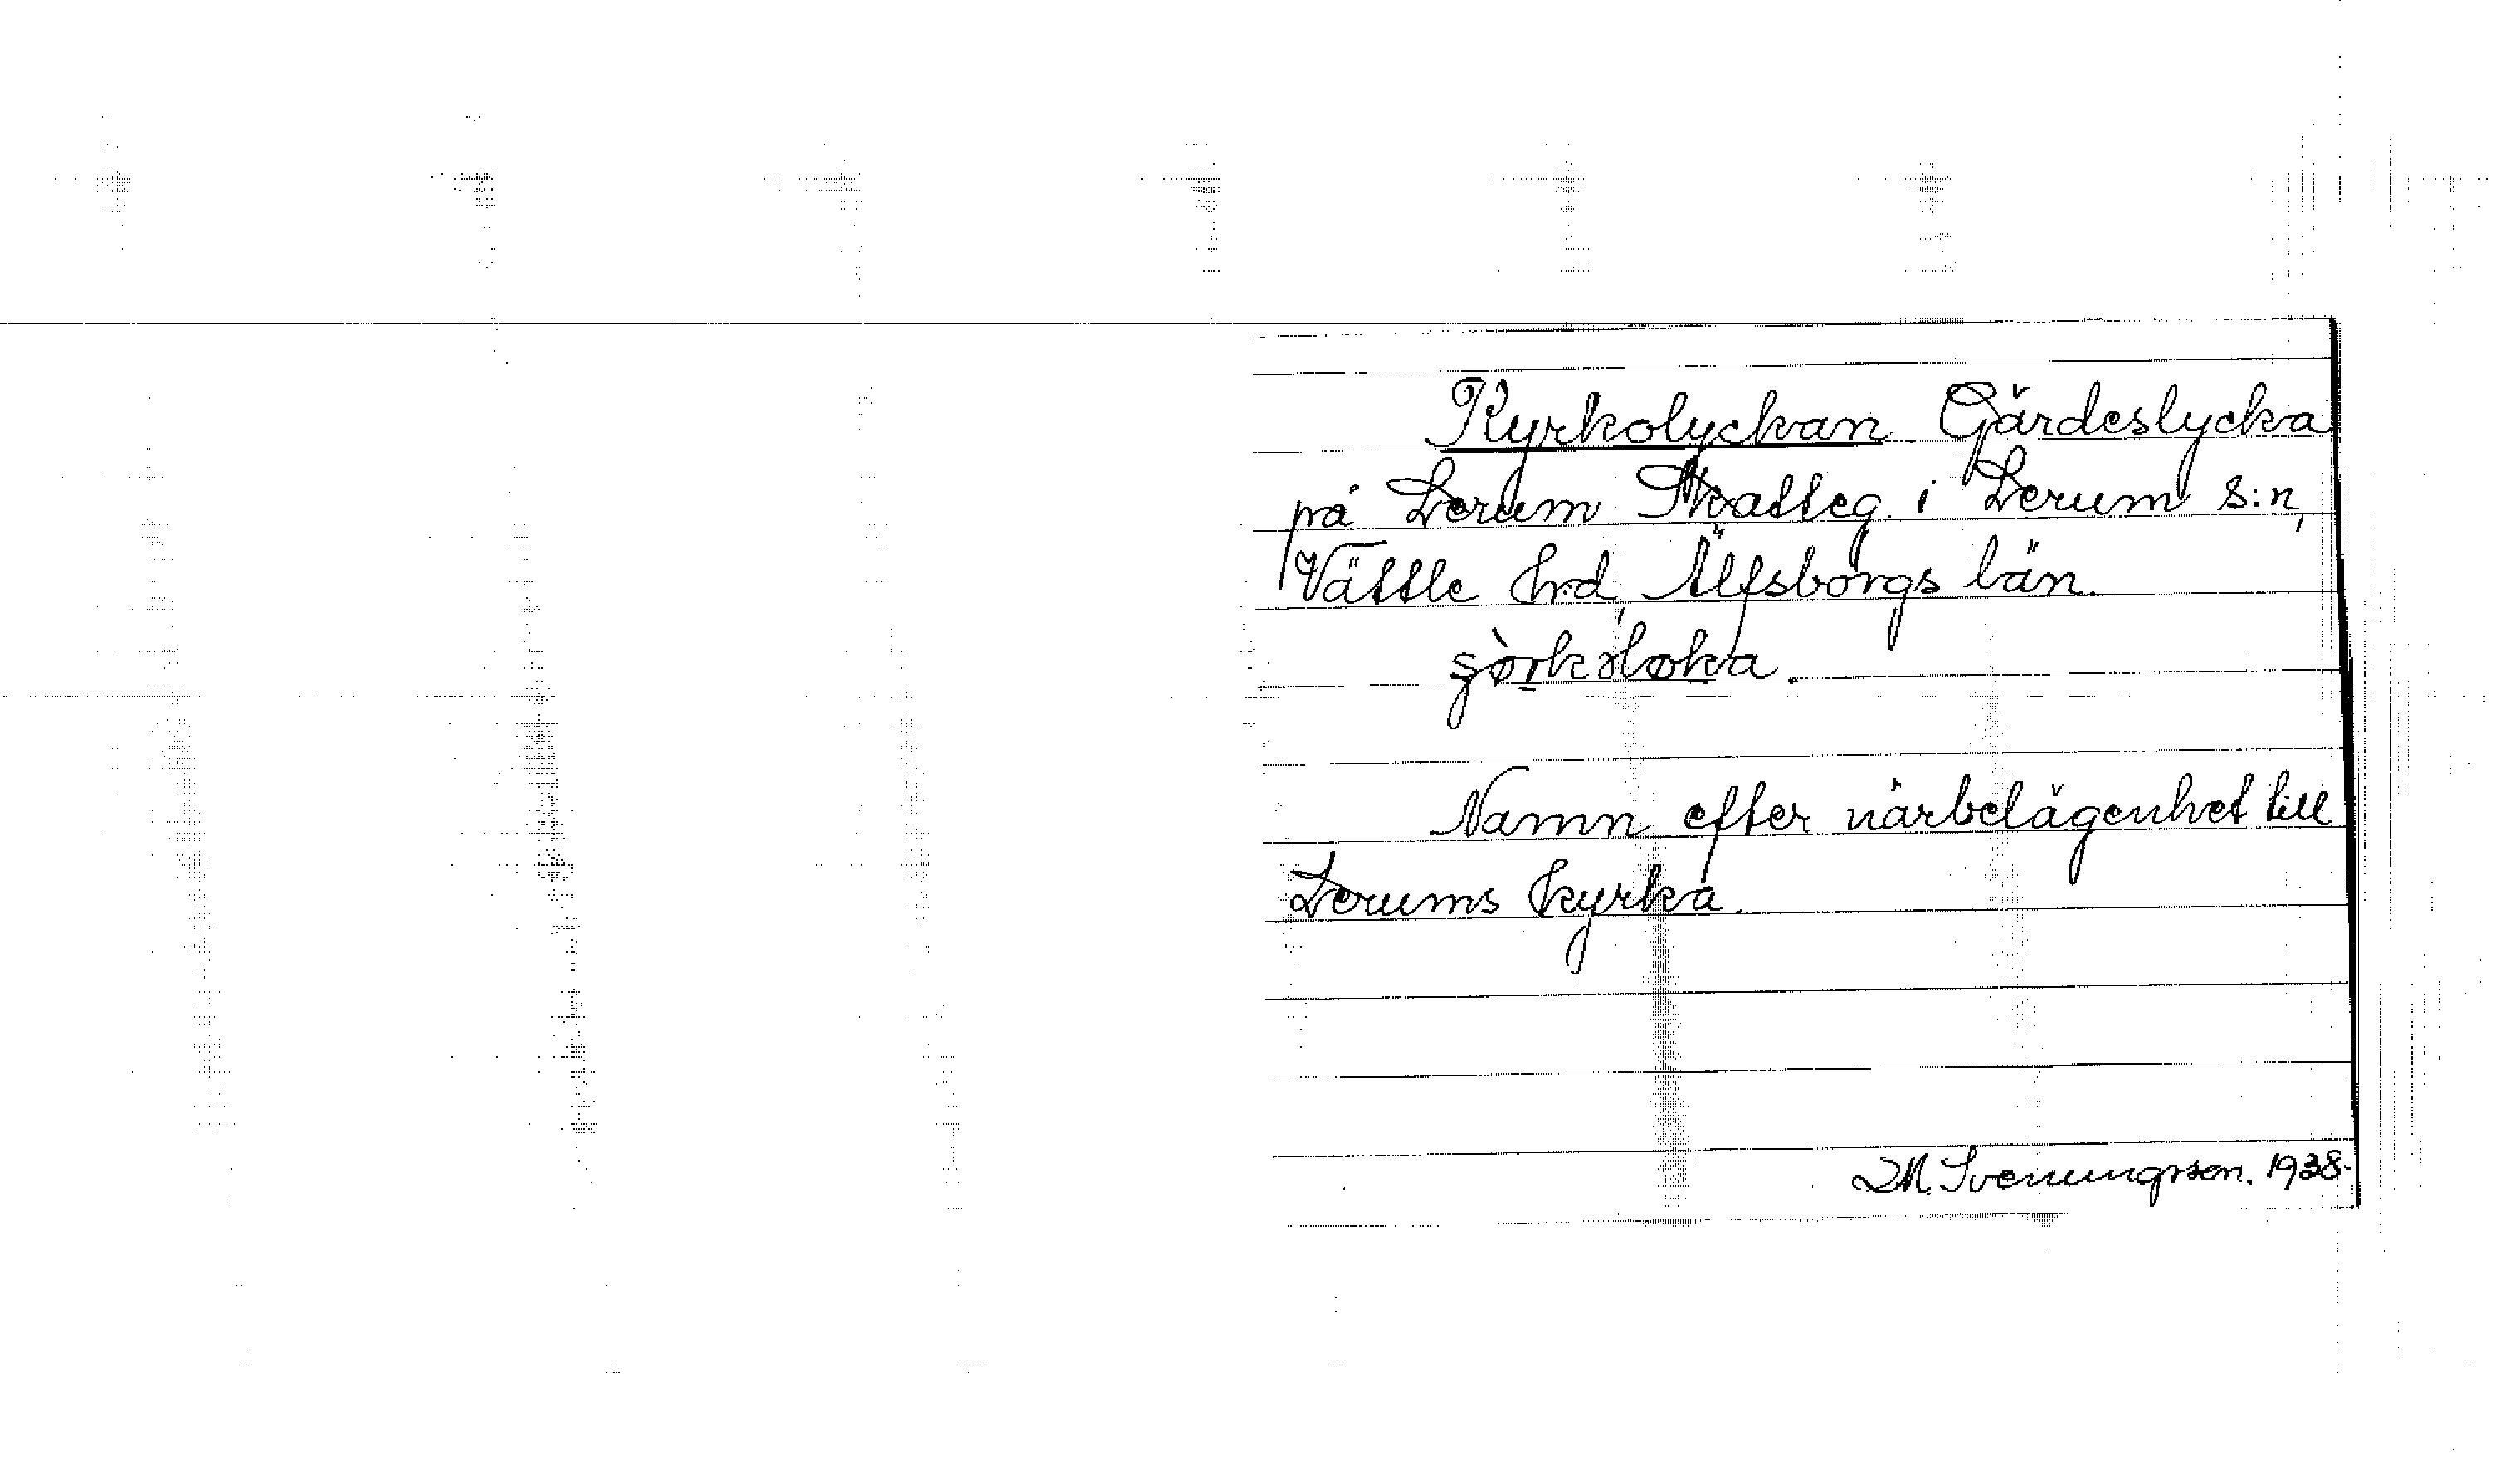 Kyrkolyckan. Gärdeslycka
på Lerum Skatteg. i Lerum s:n,
Vättle hrd, Älfsborgs län.
Namn efter närbelägenhet till
Lerums kyrka.
M. Svenungsson. 1938.